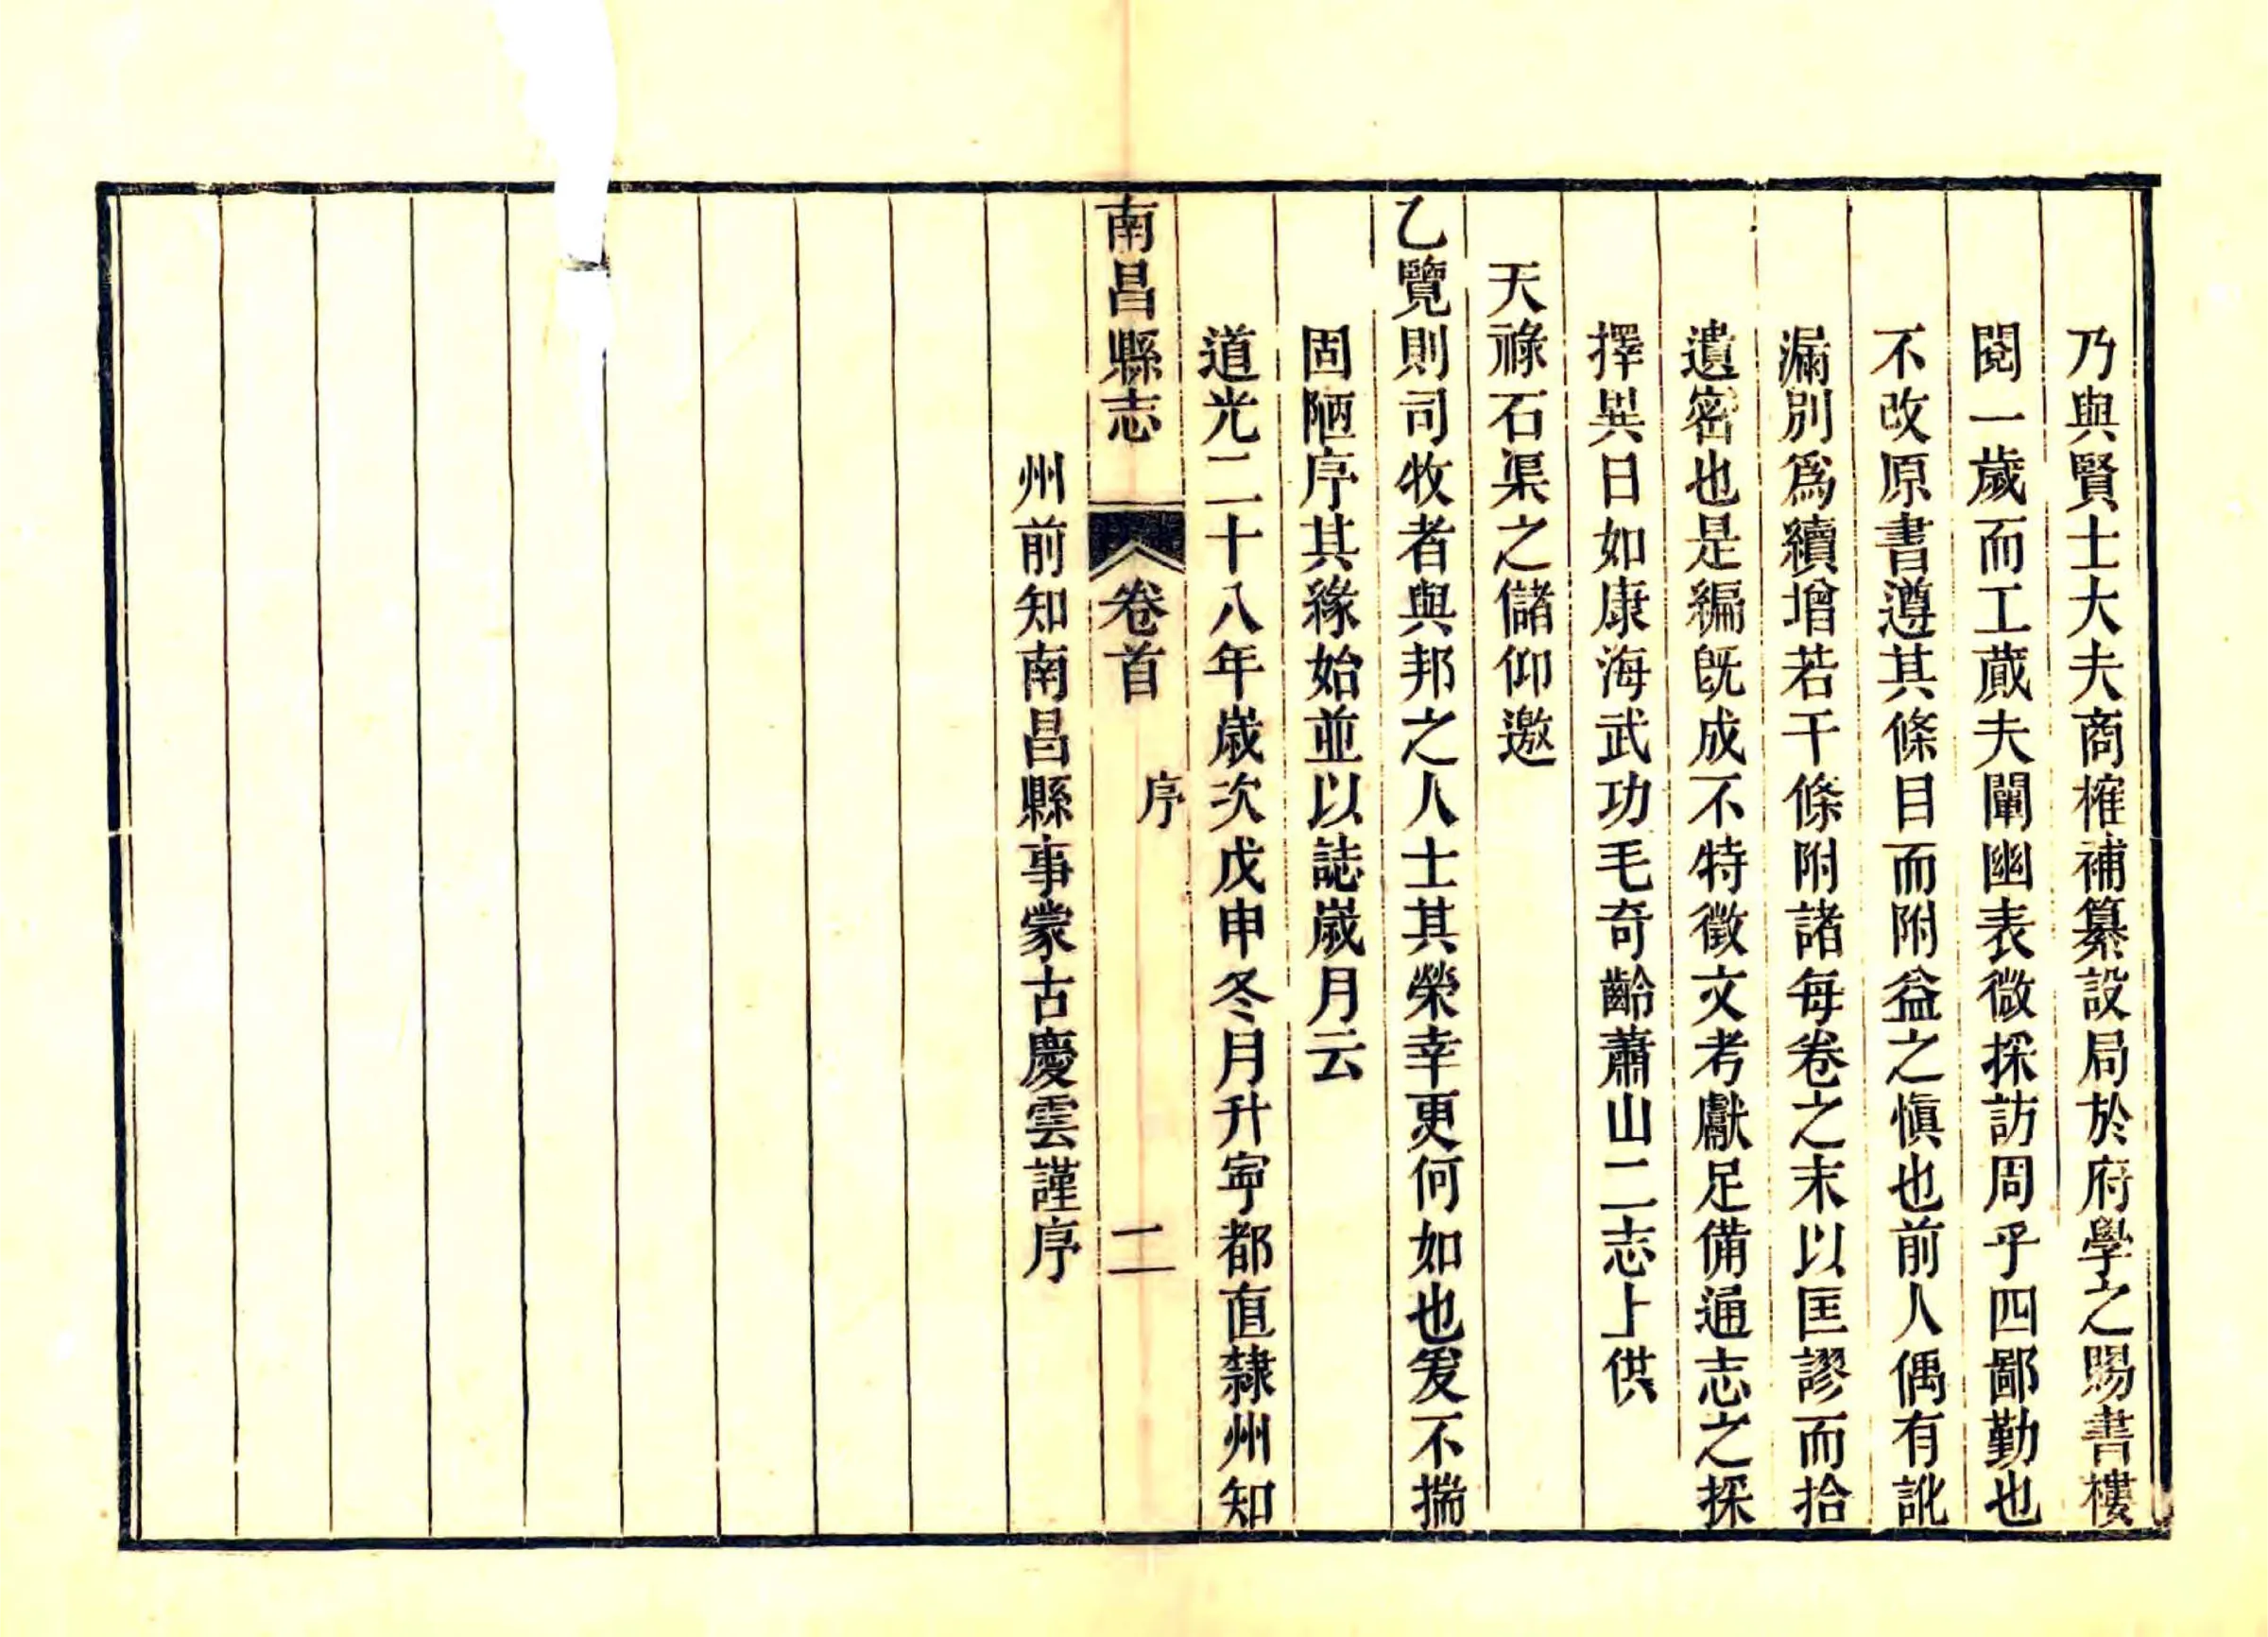 乃與賢士大夫商榷補纂設局於府學之賜書樓
閱一歲而工蕆夫闡幽表微採訪周乎四鄙勤也
不改原書遵其條目而附益之愼也前人偶有訛
漏別爲續增若干條附諸每卷之末以匡謬而拾
遺密也是編旣成不特徵文考獻足備通志之採
擇異日如康海武功毛奇齡蕭山二志上供
天祿石渠之儲仰邀
乙覽則司牧者與邦之人士其榮幸更何如也爰不揣
固陋序其緣始並以誌嵗月云
道光二十八年嵗次戊申冬月升寕都直隸州知
南昌縣志 卷首 序 二
州前知南昌縣事蒙古慶雲謹序